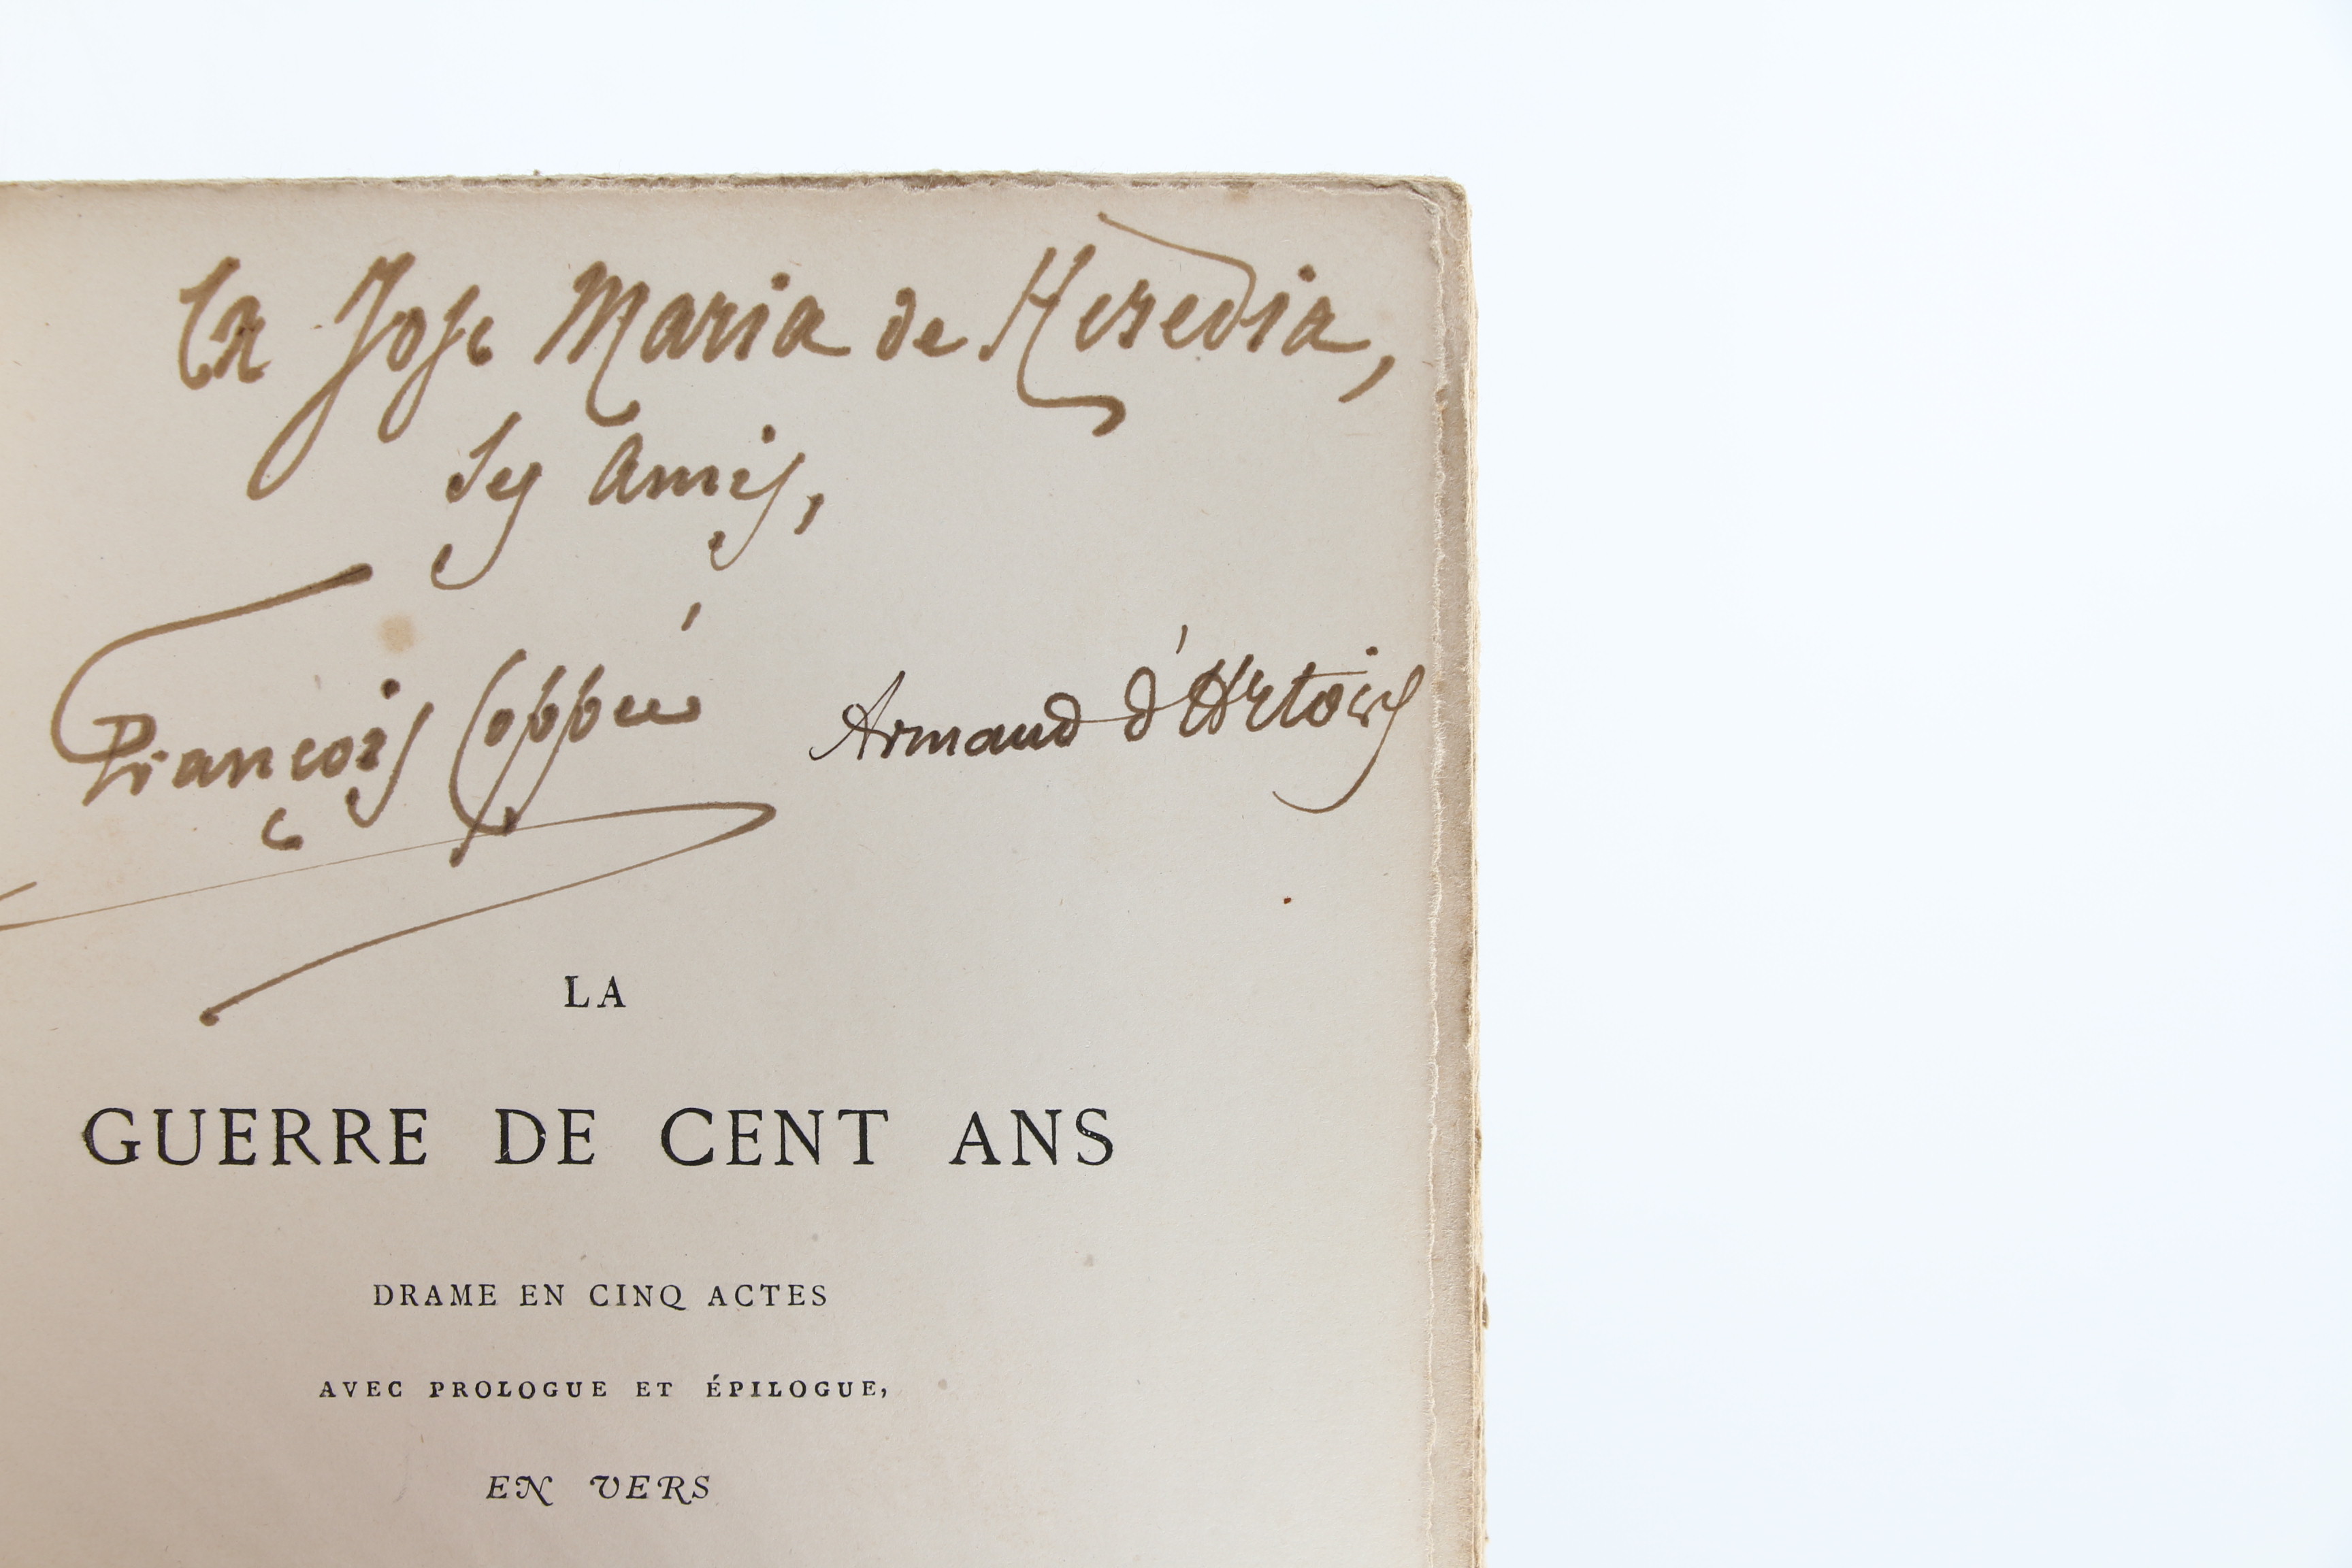 A Jose Maria de Heredia,
ses amis,
François Coppée Armand d'Artois
LA
GUERRE DE CENT ANS
DRAME EN CINQ ACTES
AVEC PROLOGUE ET ÉPILOGUE,
EN VERS